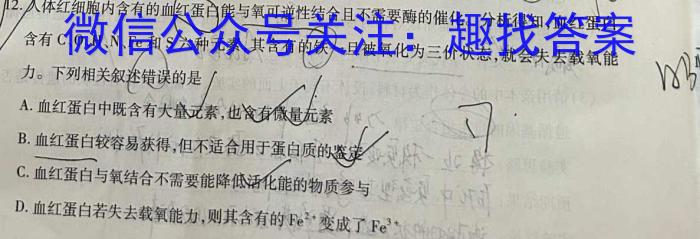 12.人体红细胞内含有的血红蛋白能与氧可逆性结合且不需要酶的催化。分析得知,血红蛋白
微信公众号关注:趣找答案
含有C、H、O、N、Fe和S六种元素,其含有的铁一旦被氧化为三价状态,就会失去载氧能
力。下列相关叙述错误的是
A.血红蛋白中既含有大量元素,也含有微量元素
B.血红蛋白较容易获得,但不适合用于蛋白质的鉴定
C.血红蛋白与氧结合不需要能降低活化能的物质参与
D.血红蛋白若失去载氧能力,则其含有的Fe²⁺变成了Fe³⁺